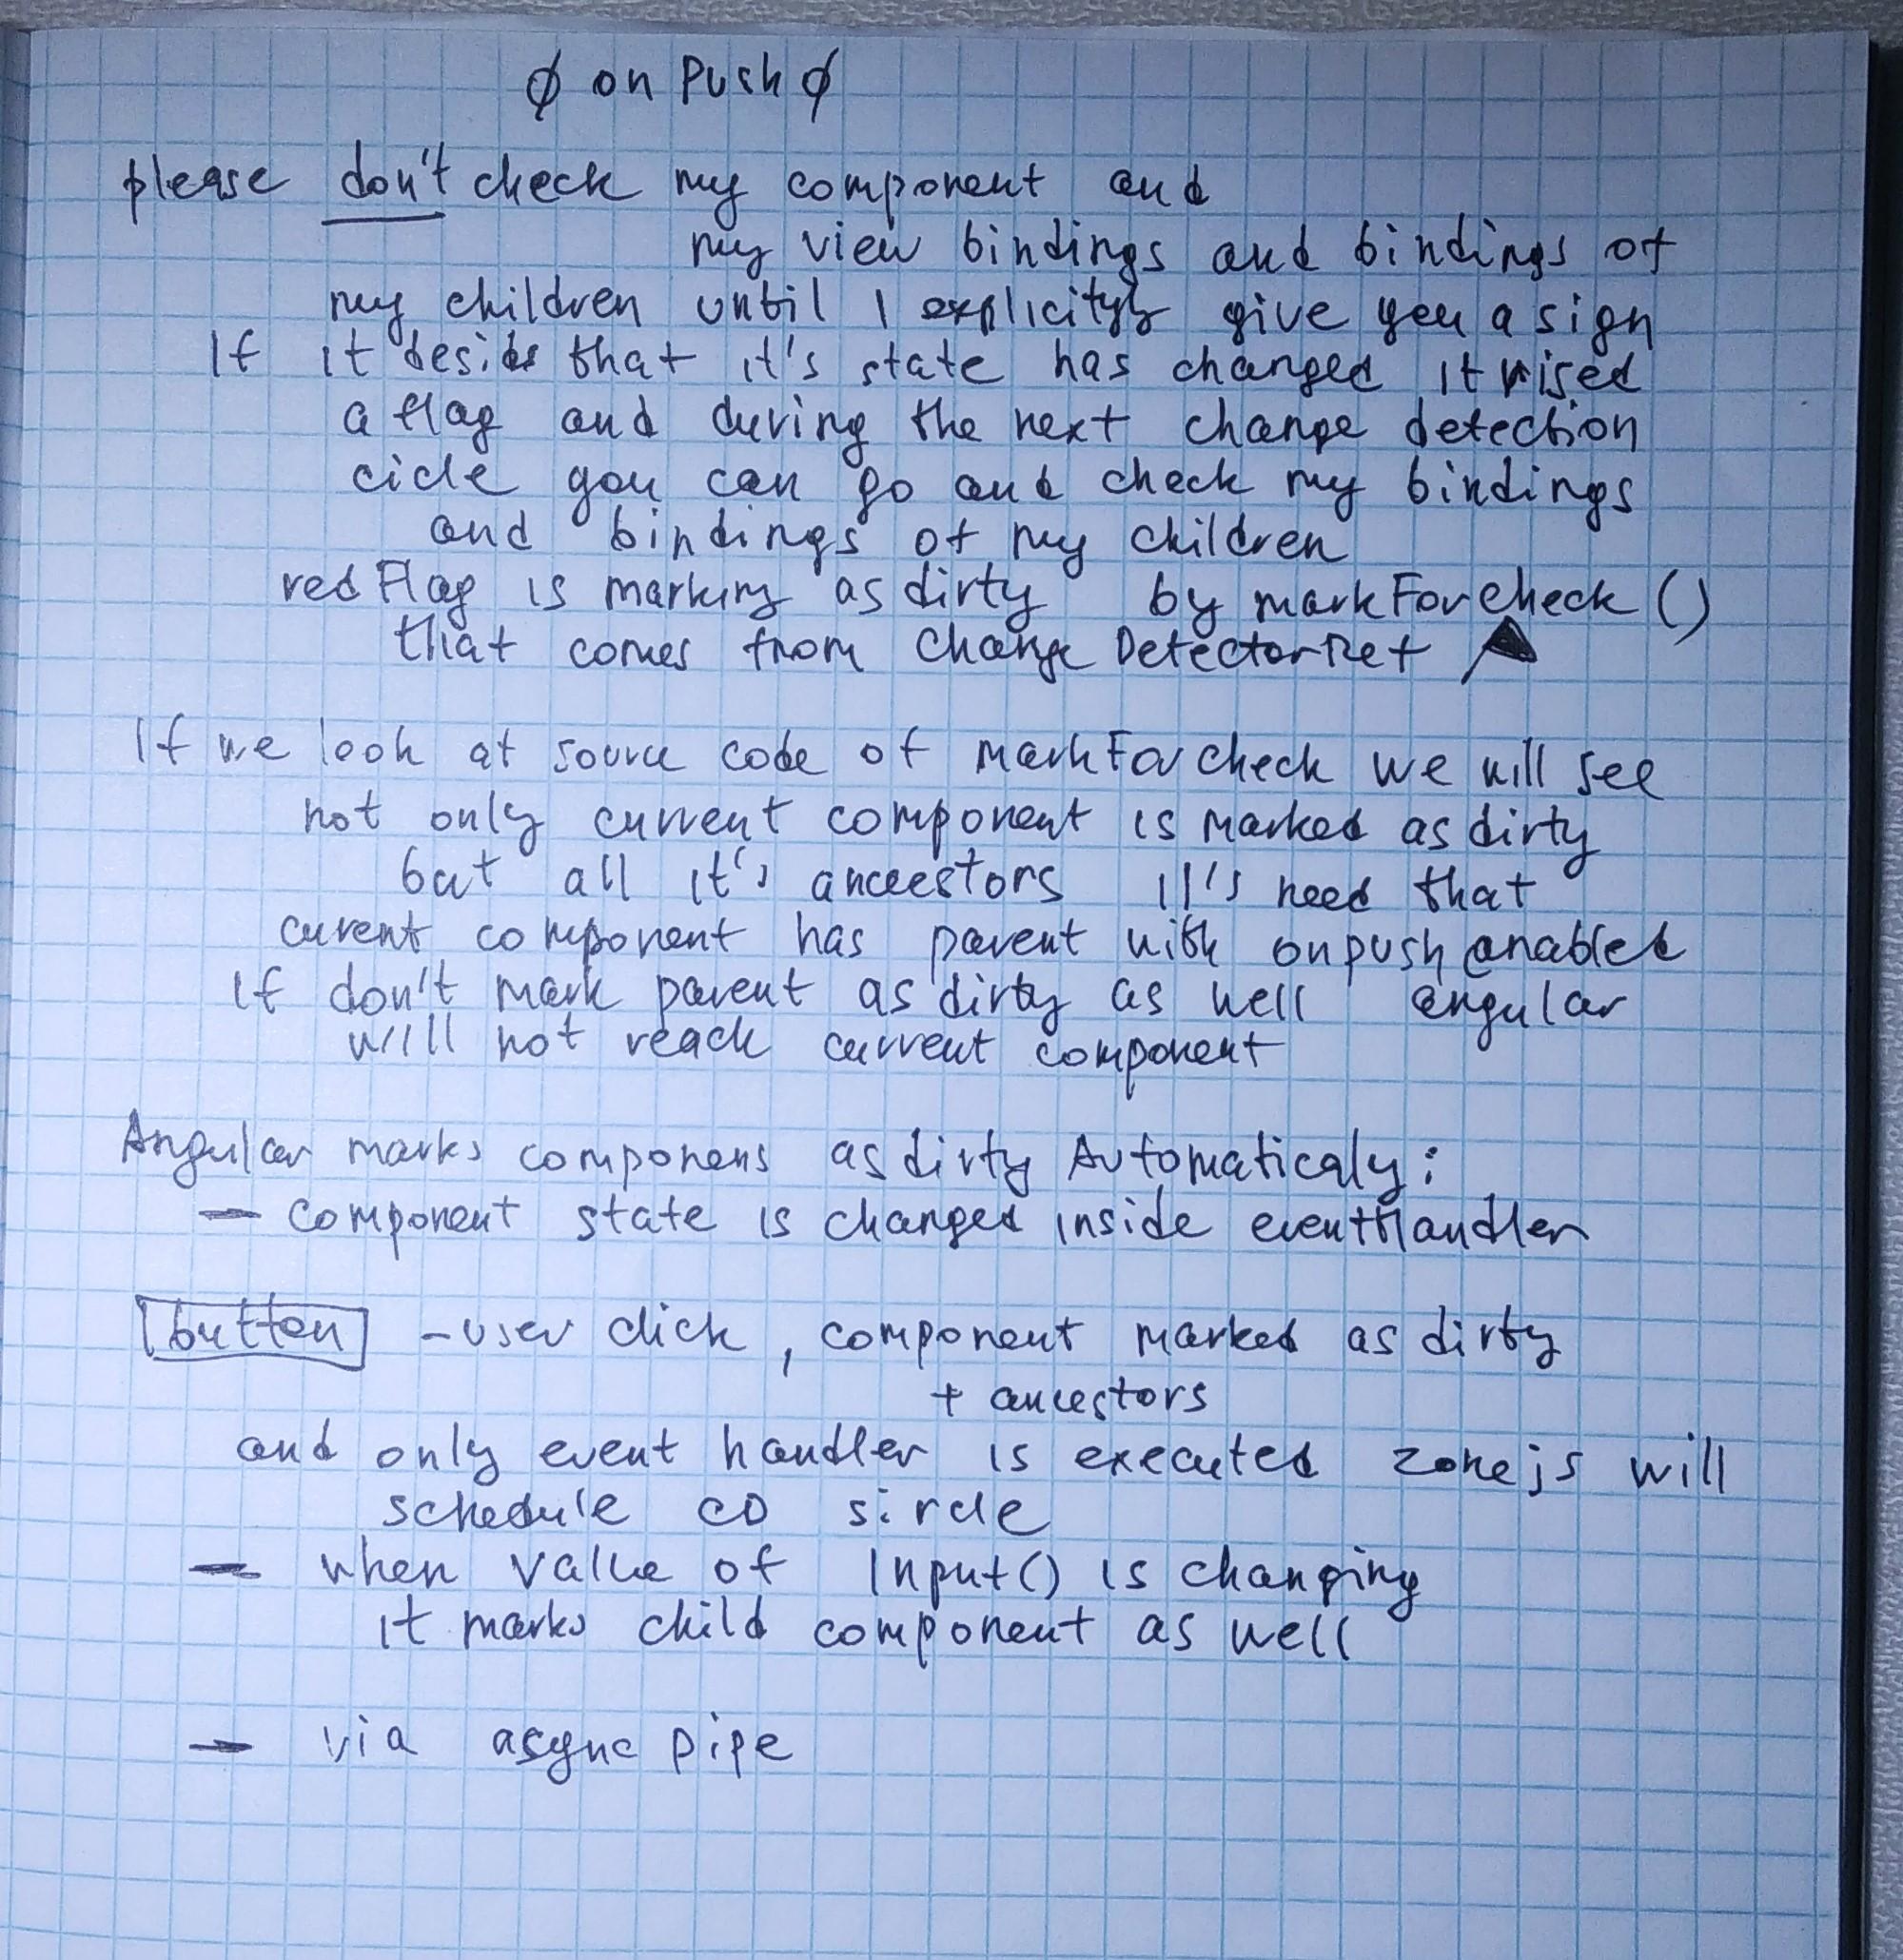 ∅ on Push ∅
please don't check my component and
my view bindings and bindings of
my children until I explicityly give you a sign
If it desides that it's state has changed it rised
a flag and during the next change detection
cicle you can go and check my bindings
and bindings of my children
red Flag is marking as dirty by markForCheck ()
that comes from Change DetectorRef
If we look at source code of markForCheck we will see
not only current component is marked as dirty
but all it's anceestors It's need that
curent component has parent with onpush enabled
If don't mark parent as dirty as well angular
will not reach current component
Angular marks componens as dirty Automaticaly:
- component state is changed inside eventHandler
button - user click, component marked as dirty
+ ancestors
and only event handler is executed zonejs will
schedule CD sircle
- when value of Input() is changing
it marks child component as well
- via async pipe